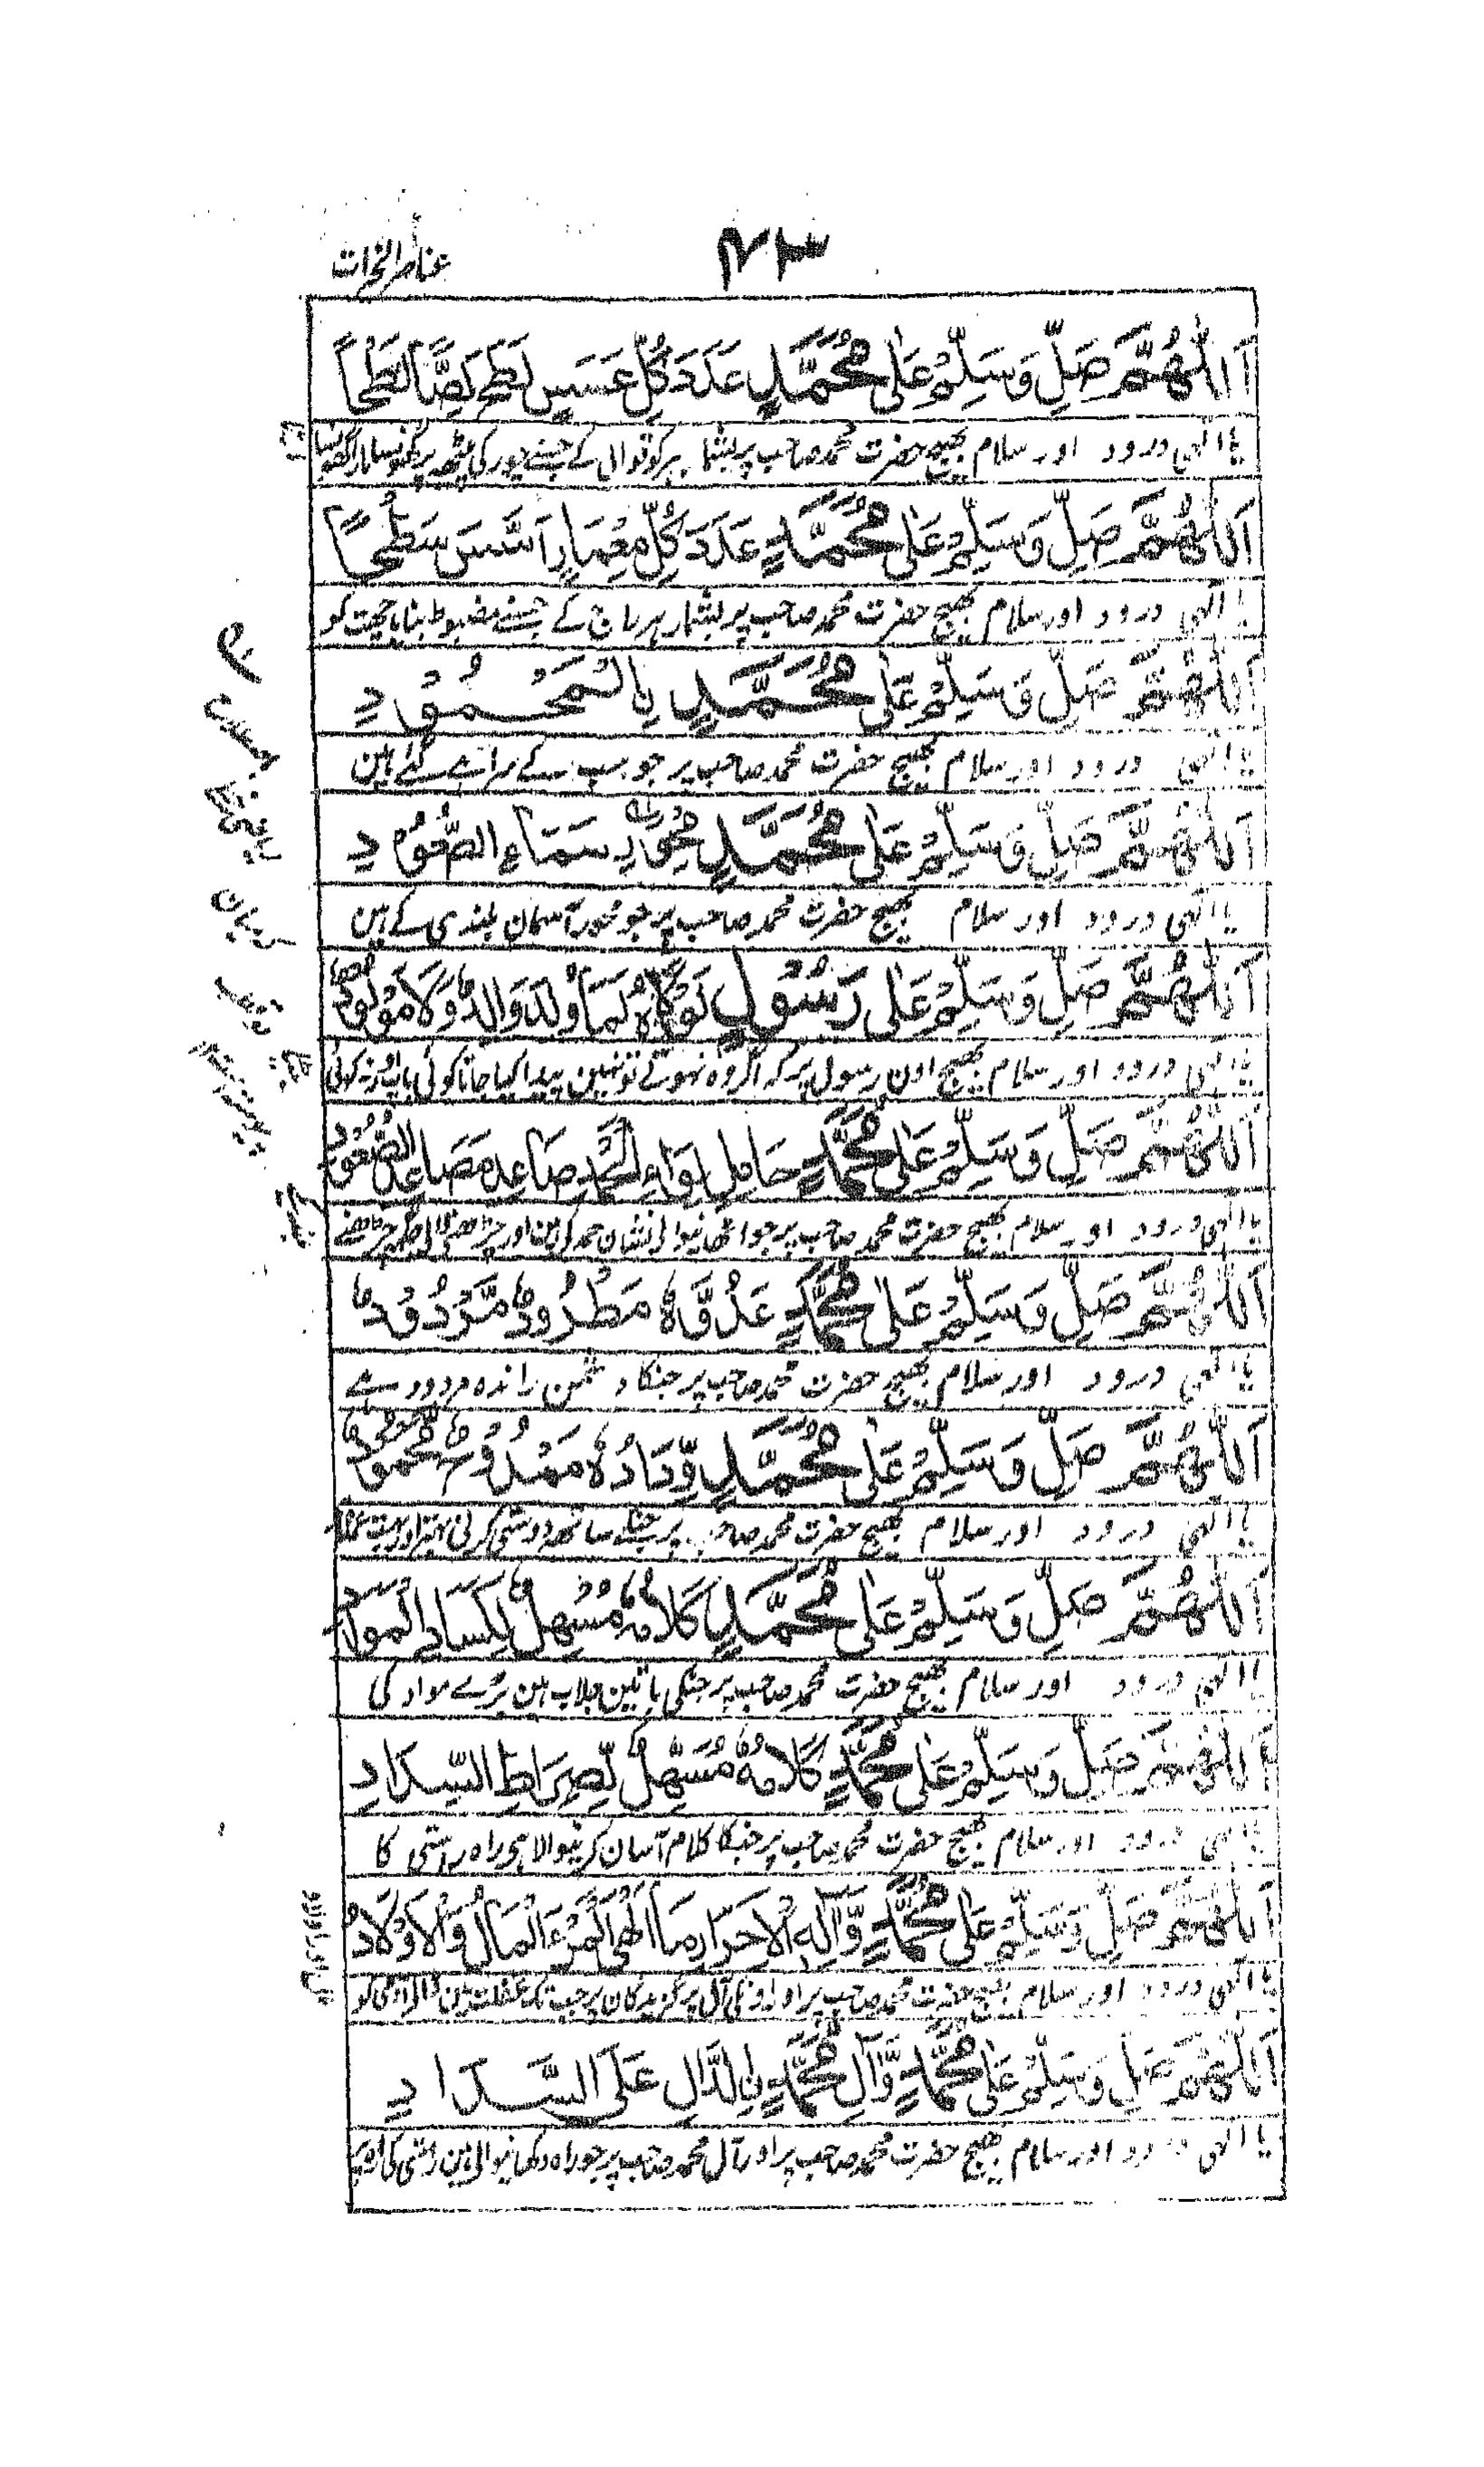 عناصر الخيرات
اَللّٰهُمَّ صَلِّ وَسَلِّمْ عَلٰى مُحَمَّدٍ عَدَدَ كُلِّ عَسَسٍ لَطَحَ لِصًّا لَطْحًا
یا الٰہی درود اور سلام بھیج حضرت محمد صاحب پر بشمار ہر کوتوالی کے جسنے چور کی پیٹھ پر
اَللّٰهُمَّ صَلِّ وَسَلِّمْ عَلٰى مُحَمَّدٍ عَدَدَ كُلِّ مِعْمَارٍ اَسَّسَ سَطْحًا
یا الٰہی درود اور سلام بھیج حضرت محمد صاحب پر بشمار ہر راج کے جسنے مضبوط بنایا چھت کو
اَللّٰهُمَّ صَلِّ وَسَلِّمْ عَلٰى مُحَمَّدٍ بِالْمَحْمُوْدِ
یا الٰہی درود اور سلام بھیج حضرت محمد صاحب پر جو سب کے سراہے گئے ہین
اَللّٰهُمَّ صَلِّ وَسَلِّمْ عَلٰى مُحَمَّدٍ مِحْوَرِ سَمَاءِ الصُّعُوْدِ
یا الٰہی درود اور سلام بھیج حضرت محمد صاحب پر جو محور آسمان بلندی کے ہین
اَللّٰهُمَّ صَلِّ وَسَلِّمْ عَلٰى رَسُوْلٍ لَوْلَاهُ لَمَا وُلِدَ وَالِدٌ وَلَا مَوْلُوْدٌ
یا الٰہی درود اور سلام بھیج اون رسول پر کہ اگر وہ نہوتے تو نہین پیدا کیا جاتا کوئی باپ اور نہ کوئی
اَللّٰهُمَّ صَلِّ وَسَلِّمْ عَلٰى مُحَمَّدٍ حَامِلِ لِوَاءِ الْحَمْدِ صَاعِدِ مَصَاعِدِ الصُّعُوْدِ
یا الٰہی درود اور سلام بھیج حضرت محمد صاحب پر جو اٹھانیوالی نشان حمد کی ہین اور چڑھنے والی جگہ چڑھنے
اَللّٰهُمَّ صَلِّ وَسَلِّمْ عَلٰى مُحَمَّدٍ عَدُوُّهٗ مَطْرُوْدٌ مَّرْدُوْدٌ
یا الٰہی درود اور سلام بھیج حضرت محمد صاحب پر جنکا دشمن راندہ مردود ہے
اَللّٰهُمَّ صَلِّ وَسَلِّمْ عَلٰى مُحَمَّدٍ وِّدَادُهٗ مَمْدُوْحٌ مَّحْمُوْدٌ
یا الٰہی درود اور سلام بھیج حضرت محمد صاحب پر جنکے ساتھ دوستی کرنی بہتر اور بہت
اَللّٰهُمَّ صَلِّ وَسَلِّمْ عَلٰى مُحَمَّدٍ كَلَامُهٗ مُسْهِلٌ لِّكَسَادِ الْمَوَادِّ
یا الٰہی درود اور سلام بھیج حضرت محمد صاحب پر جنکی باتین جلاب ہین بڑے مواد کی
اَللّٰهُمَّ صَلِّ وَسَلِّمْ عَلٰى مُحَمَّدٍ كَلَامُهٗ مُسَهِّلٌ لِّصِرَاطِ السَّدَادِ
یا الٰہی درود اور سلام بھیج حضرت محمد صاحب پر جنکا کلام آسان کرنیوالا ہی راہ راستی کا
اَللّٰهُمَّ صَلِّ وَسَلِّمْ عَلٰى مُحَمَّدٍ وَّاٰلِهِ الْاَحْرَارِ مَا اَلْهَى الْمَرْءَ الْمَالُ وَالْاَوْلَادُ
یا الٰہی درود اور سلام بھیج حضرت محمد صاحب پر اور اونکی آل برگزیدگان پر جب تک غفلت مین ڈالے آدمی کو
اَللّٰهُمَّ صَلِّ وَسَلِّمْ عَلٰى مُحَمَّدٍ وَّاٰلِ مُحَمَّدٍ بِالدَّالِ عَلَى السَّدَادِ
یا الٰہی درود اور سلام بھیج حضرت محمد صاحب پر اور آل محمد صاحب پر جو راہ دکھانیوالی ہین راستی کی
مال اور اولاد